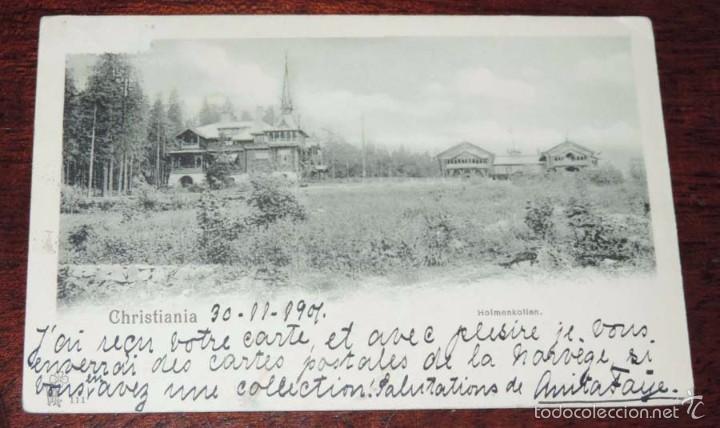 Christiania 30-11-1901.
Holmenkollen.
J'ai reçu votre carte, et avec plesire je vous
enverrai des cartes postales de la Norvège, si
vous en avez une collection! Salutations de Anita Faye.
111
todocoleccion
todocoleccion.net